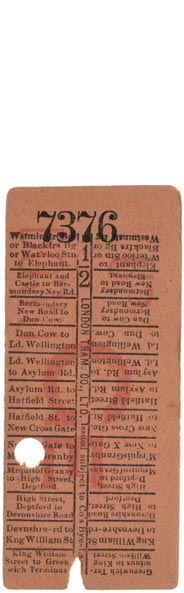 7376
Westminster
or Blackfrs Bg
or Wat'rloo Stn
to Elephant.
Elephant and
Castle to Ber-
mondsey New Rd.
Bermondsey
New Road to
Dun Cow
Dun Cow to
Ld. Wellington
Ld. Wellington
to Asylum Rd.
Asylum Rd. to
Hatfield Street
Hatfield St. to
New Cross Gate
Gate to
Granby
Mrquis of Granby
to High Street,
Deptford.
High Street,
Deptford to
Devonshire Road
Devnshre-rd to
King William St
King William
Street to Green-
wich Terminus
1
2
LONDON TRAM. CO., LTD. Issued subject to Co's Bye-
Westminster
or Blackfrs Bg
or W'terloo Stn
to Elephant
Elephant
to
New Road
Bermondsey
New Road
to
Dun Cow
Dun Cow
to
Ld. Wellington
Ld. Wellington
to Asylum Rd.
Asylum Rd. to
Hatfield Street
Hatfield St. to
New X Gate
New X Gate to
Mrquis Granby
Mrquis of Granby
to High Street
Deptford
High Street
Deptford to
Devonshire Road
Devnshre-rd to
King William St
King William
Street to
Greenwich Ter-
minus